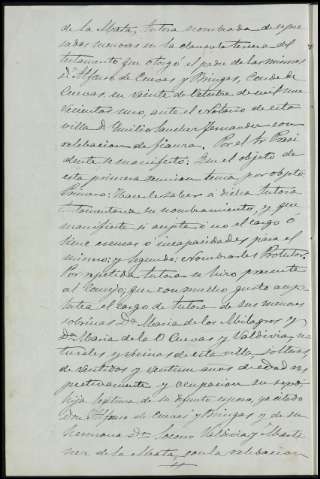 de la Mata, tutora nombrada de espre
sadas menores en la clausula tercera del
testamento que otorgó el padre de las mismas
Dn Alfonso de Cuevas y Bringas, Conde de
Cuevas en veinte de Octubre de mil nove
cientos uno, ante el Notario de esta
villa D. Emilio Sanchez Fernandez con
relevacion de fianza. Por el Sr. Presi
dente se manifestó: Que el objeto de
esta primera reunion tenia por objeto.
Primero: Hacerle saber a dicha tutora
testamentaria su nombramiento, y que
manifieste si acepta ó no el cargo ó
tiene escusas ó incapacidades para el
mismo; y segundo: Nombrarle Protutor.
Por repetida tutora se hizo presente
al Consejo; que con mucho gusto acep
taba el cargo de tutora de sus menores
sobrinas Dña Maria de los Milagros y
Dña Maria de la O Cuevas y Valdivia, na
turales y vecinas de esta villa, solteras
de veintidos y veintiun años de edad res
pectivamente y ocupacion su sexo;
hija legitima de su difunto esposo, ya citado
Don Alfonso de Cuevas y Bringas y de su
hermana Dña Socorro Valdivia y Marti
nez de la Mata, con la relevacion